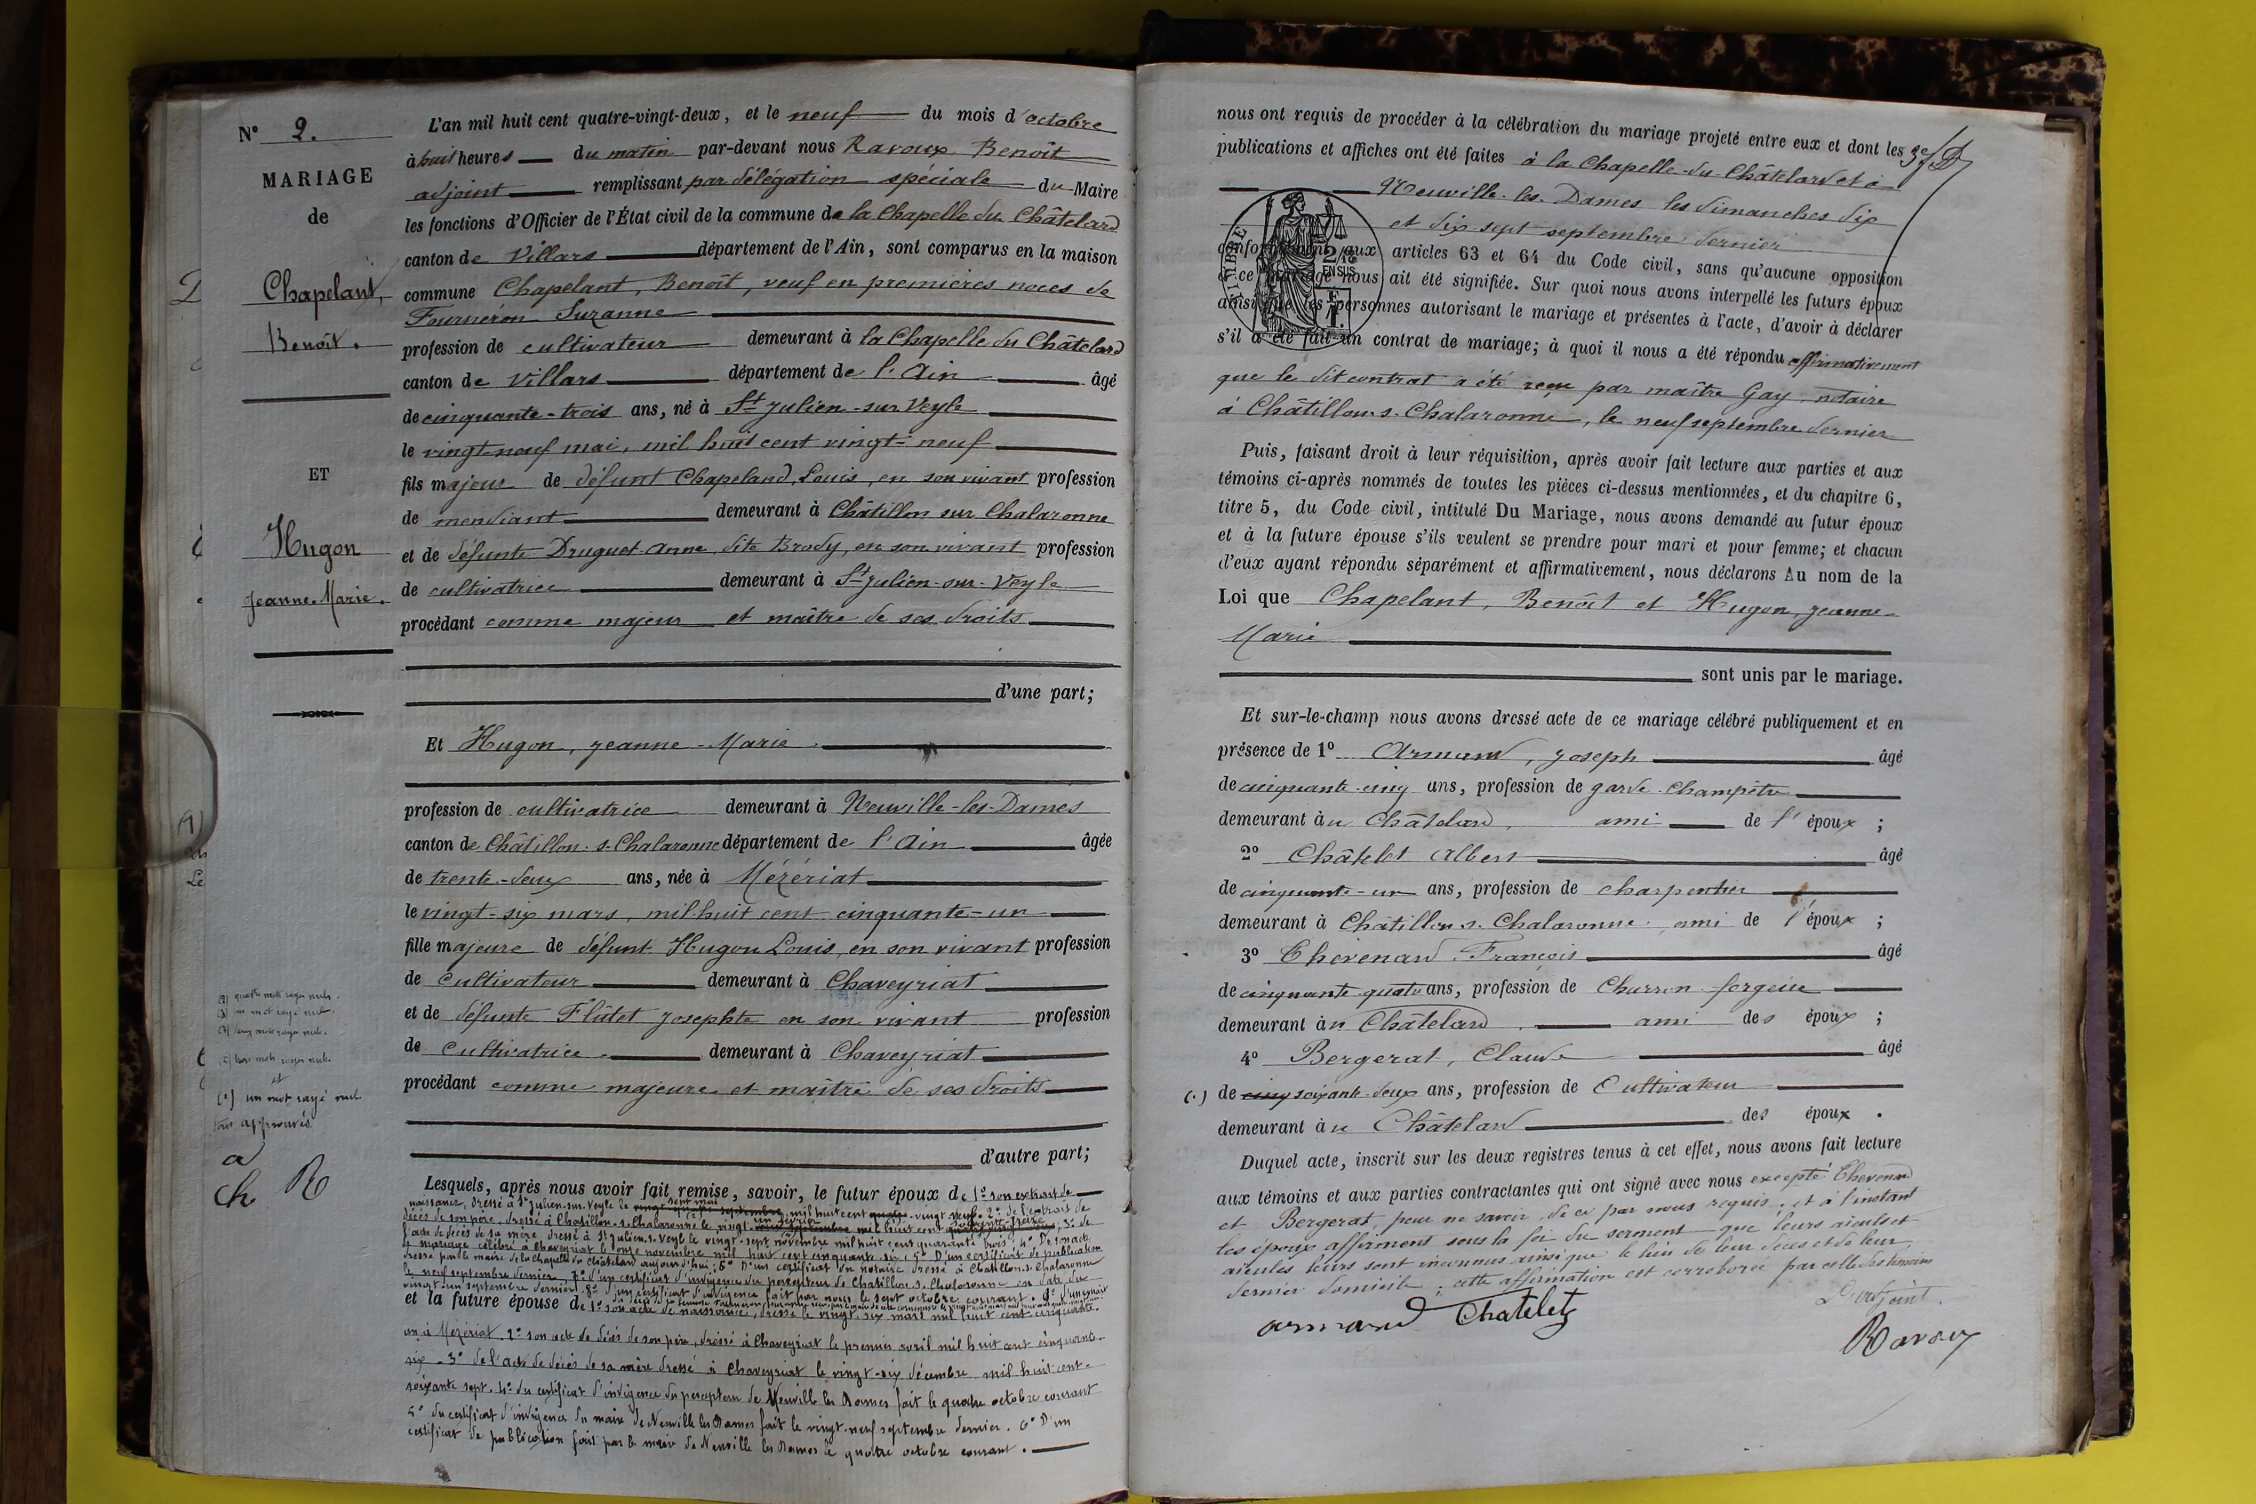 N° 2.
MARIAGE
de
Chapelant,
Benoît.
ET
Hugon
Jeanne-Marie.
L'an mil huit cent quatre-vingt-deux, et le neuf du mois d'octobre
à huit heures du matin par-devant nous Ravoux Benoît
adjoint remplissant par délégation spéciale du Maire
les fonctions d'Officier de l'État civil de la commune de la Chapelle du Châtelard
canton de Villars département de l'Ain, sont comparus en la maison
commune Chapelant, Benoît, veuf en premières noces de
Fourneron Suzanne
profession de cultivateur demeurant à la Chapelle du Châtelard
canton de Villars département de l'Ain âgé
de cinquante-trois ans, né à St Julien-sur-Veyle
le vingt-neuf mai, mil huit cent vingt-neuf
fils majeur de défunt Chapeland, Louis, en son vivant profession
de mendiant demeurant à Châtillon sur Chalaronne
et de défunte Druguet Anne dite Brody, en son vivant profession
de cultivatrice demeurant à St Julien-sur-Veyle
procédant comme majeur et maître de ses droits
d'une part;
Et Hugon, Jeanne-Marie.
profession de cultivatrice demeurant à Neuville-les-Dames
canton de Châtillon-s-Chalaronne département de l'Ain âgée
de trente-deux ans, née à Mézériat
le vingt-six mars, mil-huit cent cinquante-un
fille majeure de défunt Hugon Louis, en son vivant profession
de cultivateur demeurant à Chaveyriat
et de défunte Flûtet Josephte en son vivant profession
de cultivatrice demeurant à Chaveyriat
procédant comme majeure et maître de ses droits
d'autre part;
Lesquels, après nous avoir fait remise, savoir, le futur époux de 1° son extrait de
naissance, dressé à St Julien-sur-Veyle le mil huit cent vingt-neuf. 2° de l'extrait de
décès de son père, dressé à Châtillon-s-Chalaronne le vingt- mil huit cent 3° de
l'acte de décès de sa mère dressé à St Julien-s-Veyle le vingt-sept novembre mil huit cent quarante trois; 4° De son acte
de mariage célébré à Chaveyriat le onze novembre mil huit cent cinquante-six; 5° D'un certificat de publication
dressé par le maire de la Chapelle du Châtelard aujourd'hui; 6° D'un certificat du notaire dressé à Châtillon-s-Chalaronne
le neuf septembre dernier, 7° d'un certificat d'indigence du percepteur de Châtillon-s-Chalaronne en date du
vingt-un septembre dernier. 8° d'un certificat d'indigence fait par nous le sept octobre courant. 9° d'un extrait
et la future épouse de 1° son acte de naissance, dressé le vingt-six mars mil huit cent cinquante-
un à Mézériat. 2° son acte de décès de son père, dressé à Chaveyriat le premier avril mil huit cent cinquante-
six - 3° de l'acte de décès de sa mère dressé à Chaveyriat le vingt-six décembre mil huit cent-
soixante sept. 4° du certificat d'indigence du percepteur de Neuville les Dames fait le quatre octobre courant
5° du certificat d'indigence du maire de Neuville les Dames fait le vingt-neuf septembre dernier. 6° D'un
certificat de publication fait par le maire de Neuville les Dames le quatre octobre courant.
quatre mots rayés nuls.
un mot rayé nul.
mots rayés nuls.
mots rayés nuls.
et
(.) un mot rayé nul
approuvés
a
Ch R
nous ont requis de procéder à la célébration du mariage projeté entre eux et dont les
publications et affiches ont été faites à la Chapelle-du-Châtelard et à
Neuville-les-Dames les dimanches dix
et dix-sept septembre dernier
TIMBRE
2/10
EN SUS
F
1.
conformément aux articles 63 et 64 du Code civil, sans qu'aucune opposition
à ce mariage nous ait été signifiée. Sur quoi nous avons interpellé les futurs époux
ainsi que les personnes autorisant le mariage et présentes à l'acte, d'avoir à déclarer
s'il a été fait un contrat de mariage; à quoi il nous a été répondu affirmativement
que le dit contrat a été reçu par maître Gay notaire
à Châtillon-s-Chalaronne, le neuf septembre dernier
Puis, faisant droit à leur réquisition, après avoir fait lecture aux parties et aux
témoins ci-après nommés de toutes les pièces ci-dessus mentionnées, et du chapitre 6,
titre 5, du Code civil, intitulé Du Mariage, nous avons demandé au futur époux
et à la future épouse s'ils veulent se prendre pour mari et pour femme; et chacun
d'eux ayant répondu séparément et affirmativement, nous déclarons Au nom de la
Loi que Chapelant, Benoît et Hugon, Jeanne-
Marie
sont unis par le mariage.
Et sur-le-champ nous avons dressé acte de ce mariage célébré publiquement et en
présence de 1° Armand, Joseph âgé
de cinquante-cinq ans, profession de garde-champêtre
demeurant au Châtelard, ami de l'époux;
2° Châtelet Albert âgé
de cinquante-un ans, profession de charpentier
demeurant à Châtillon-s-Chalaronne, ami de l'époux;
3° Chevenard François âgé
de cinquante-quatre ans, profession de Charron-forgeur
demeurant au Châtelard, ami des époux;
4° Bergerat, Claude âgé
(.) de cinq soixante-deux ans, profession de Cultivateur
demeurant au Châtelard des époux.
Duquel acte, inscrit sur les deux registres tenus à cet effet, nous avons fait lecture
aux témoins et aux parties contractantes qui ont signé avec nous excepté Chevenard
et Bergerat, pour ne savoir, de ce par nous requis, et à l'instant
les époux affirment sous la foi du serment que leurs aïeuls et
aïeules leurs sont inconnus ainsi que le lieu de leur décès et de leur
dernier domicile; cette affirmation est corroborée par celle des témoins
L'adjoint.
Armand Chatelet
Ravoux